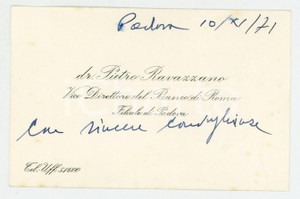 Padova 10/XI/71
dr. Pietro Ravazzano
Vice Direttore del Banco di Roma
Filiale di Padova
Con sincere condoglianze
Tel. Uff. 51800